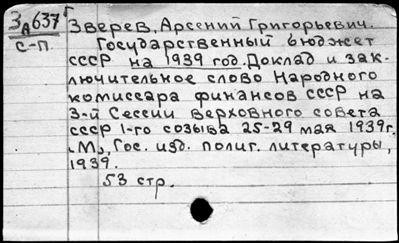 ЗА637г
С-П.
Зверев, Арсений Григорьевич.
Государственный бюджет
СССР на 1939 год. Доклад и зак-
лючительное слово Народного
комиссара финансов СССР на
3-й Сессии Верховного Совета
СССР 1-го созыва 25-29 мая 1939г.
М., Гос. изд. полит. литературы,
1939.
53 стр.